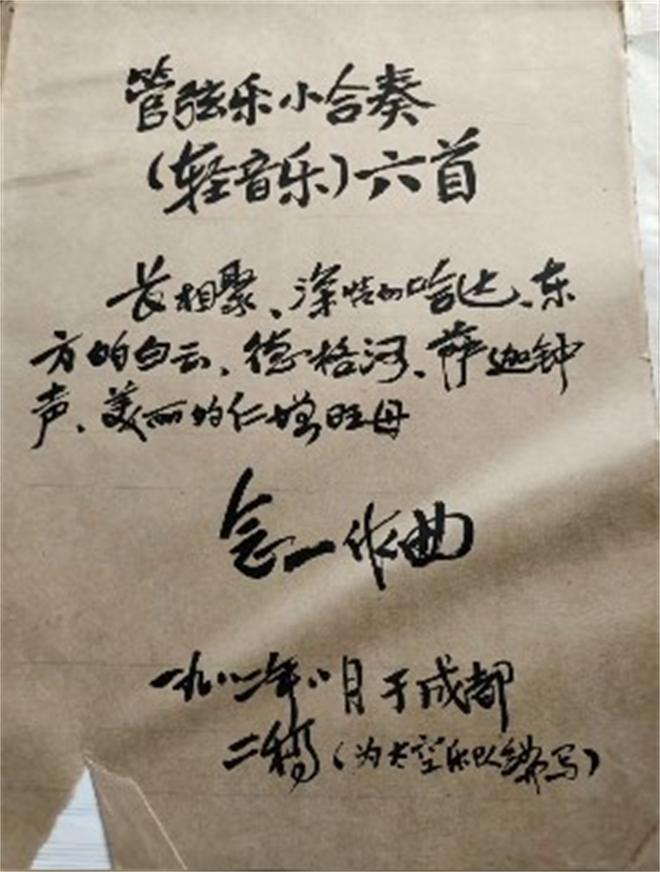 管弦乐小合奏
(轻音乐)六首
长相聚、深情的哈达、东
方的白云、德格河、萨迦钟
声、美丽的仁增旺母
会一作曲
一九八二年八月于成都
二稿(为太空乐队编写)